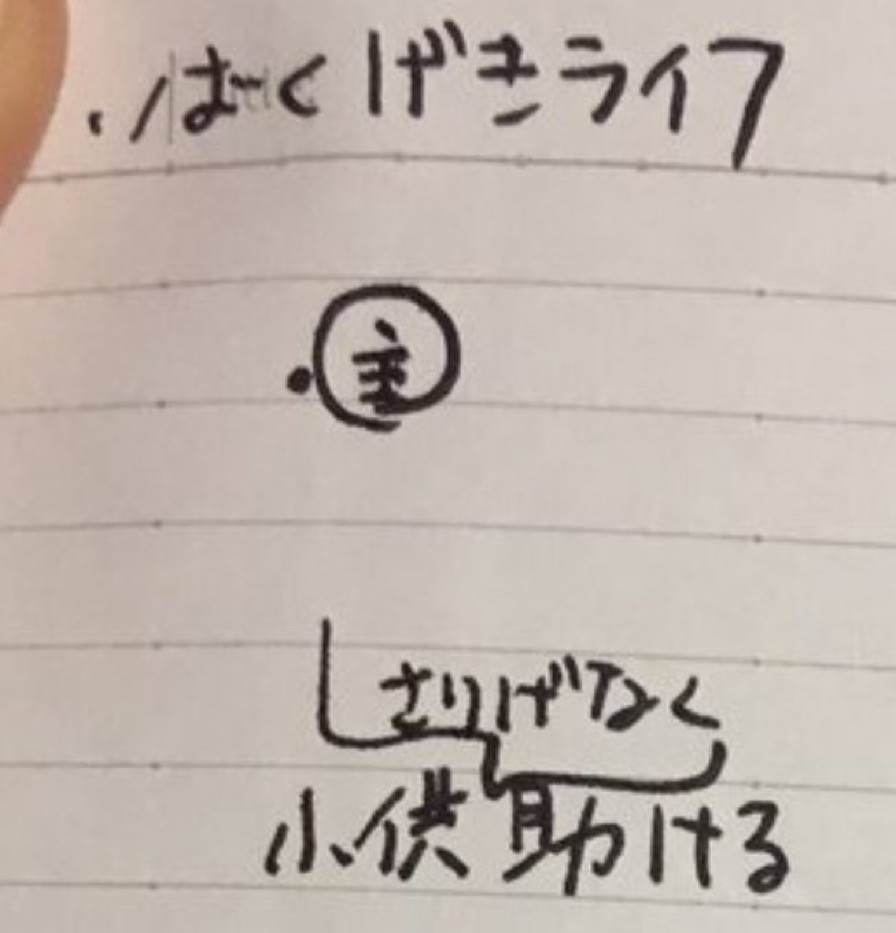 ・はーくげきライフ
・主
さりげなく
小供助ける